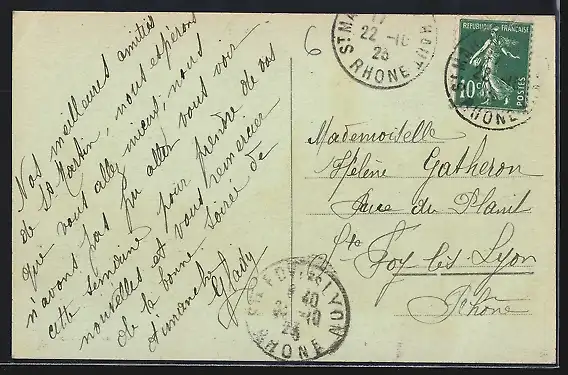 Nos meilleures amitiés
de St Martin, nous espérons
que vous allez mieux, nous
n'avons pas pu aller vous voir
cette semaine pour prendre de vos
nouvelles et vous remercier
de la bonne soirée de
dimanche
Glady
6
ST MA HAUT
17
22 - 10
23
RHONE
REPUBLIQUE FRANÇAISE
10c
POSTES
ST MA
RHONE
Mademoiselle
Hélène Gatheron
Place du Planit
Ste Foy-lès-Lyon
Rhône
STE FOY LES LYON
40
10
RHONE